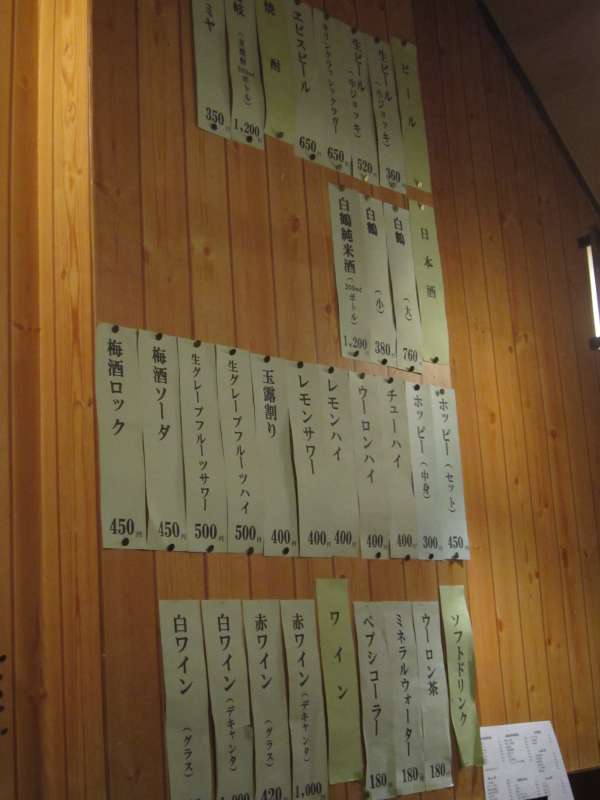 ビール
生ビール(小ジョッキ) 360円
生ビール(中ジョッキ) 520円
キリンクラシックラガー 650円
エビスビール 650円
焼酎
1,200円
ミヤ 350円
日本酒
白鶴(大) 760
白鶴(小) 380円
白鶴純米酒(300mlボトル) 1,200円
ホッピー(セット) 450円
ホッピー(中身) 300円
チューハイ 400円
ウーロンハイ 400円
レモンハイ 400円
レモンサワー 400円
玉露割り 400円
生グレープフルーツハイ 500円
生グレープフルーツサワー 500円
梅酒ソーダ 450円
梅酒ロック 450円
ソフトドリンク
ウーロン茶 180円
ミネラルウォーター 180円
ペプシコーラー 180円
ワイン
赤ワイン(デキャンタ) 1,000円
赤ワイン(グラス) 420円
白ワイン(デキャンタ)
白ワイン(グラス)